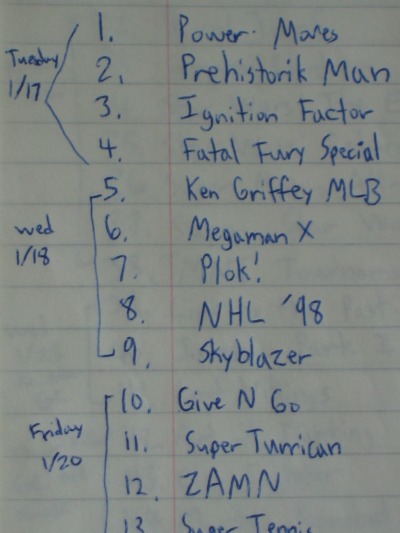 1. Power Moves
Tuesday
2. Prehistorik Man
1/17
3. Ignition Factor
4. Fatal Fury Special
5. Ken Griffey MLB
wed
6. Megaman X
1/18
7. Plok!
8. NHL '98
9. Skyblazer
10. Give N Go
Friday
11. Super Turrican
1/20
12. ZAMN
13. Super Tennis